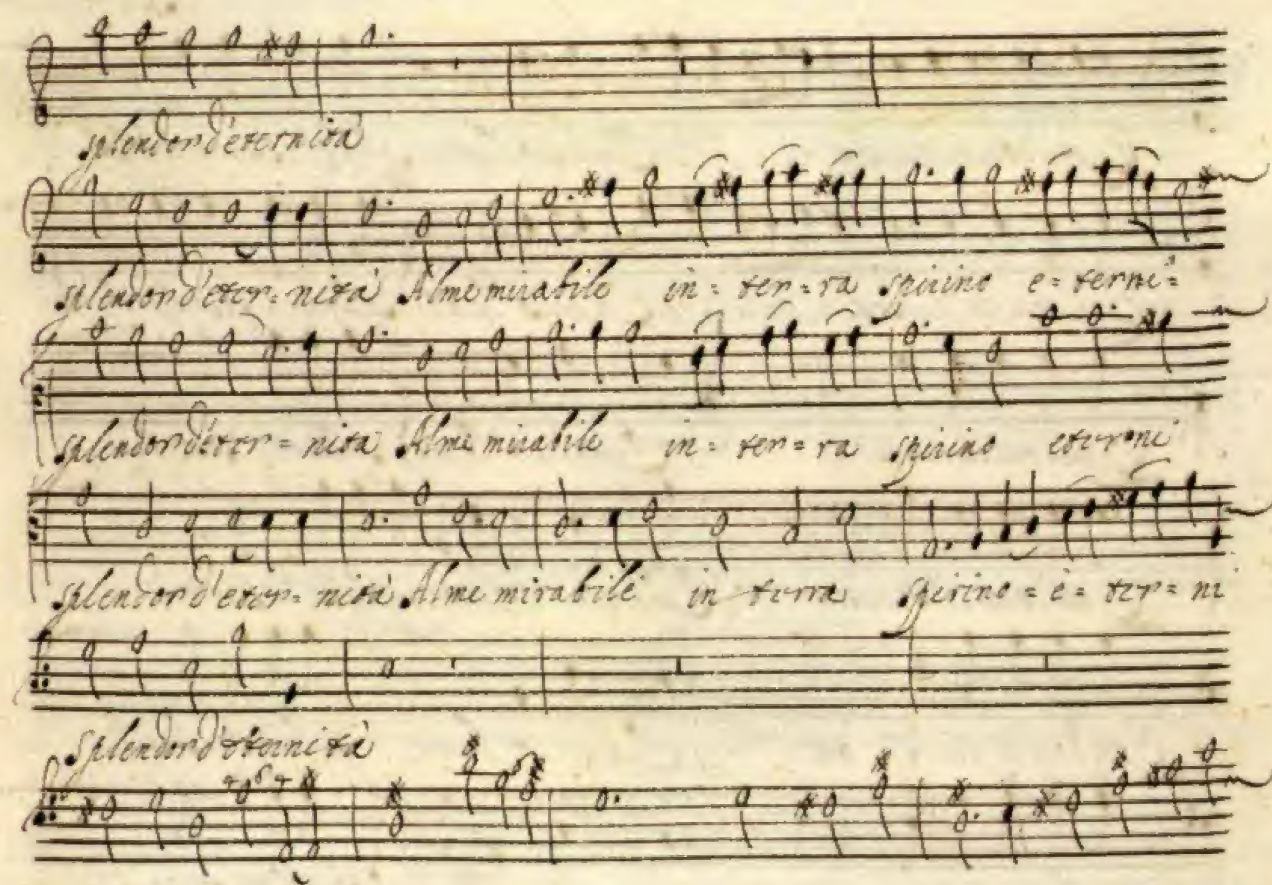 splendor d'eternità
splendor d'eter=nità Alme mirabile in=ter=ra spirino e=terni=
splendor d'eter=nità Alme mirabile in=ter=ra spirino eter=ni
splendor d'eter=nità Alme mirabile in terra spirino=e=ter=ni
splendor d'eternità